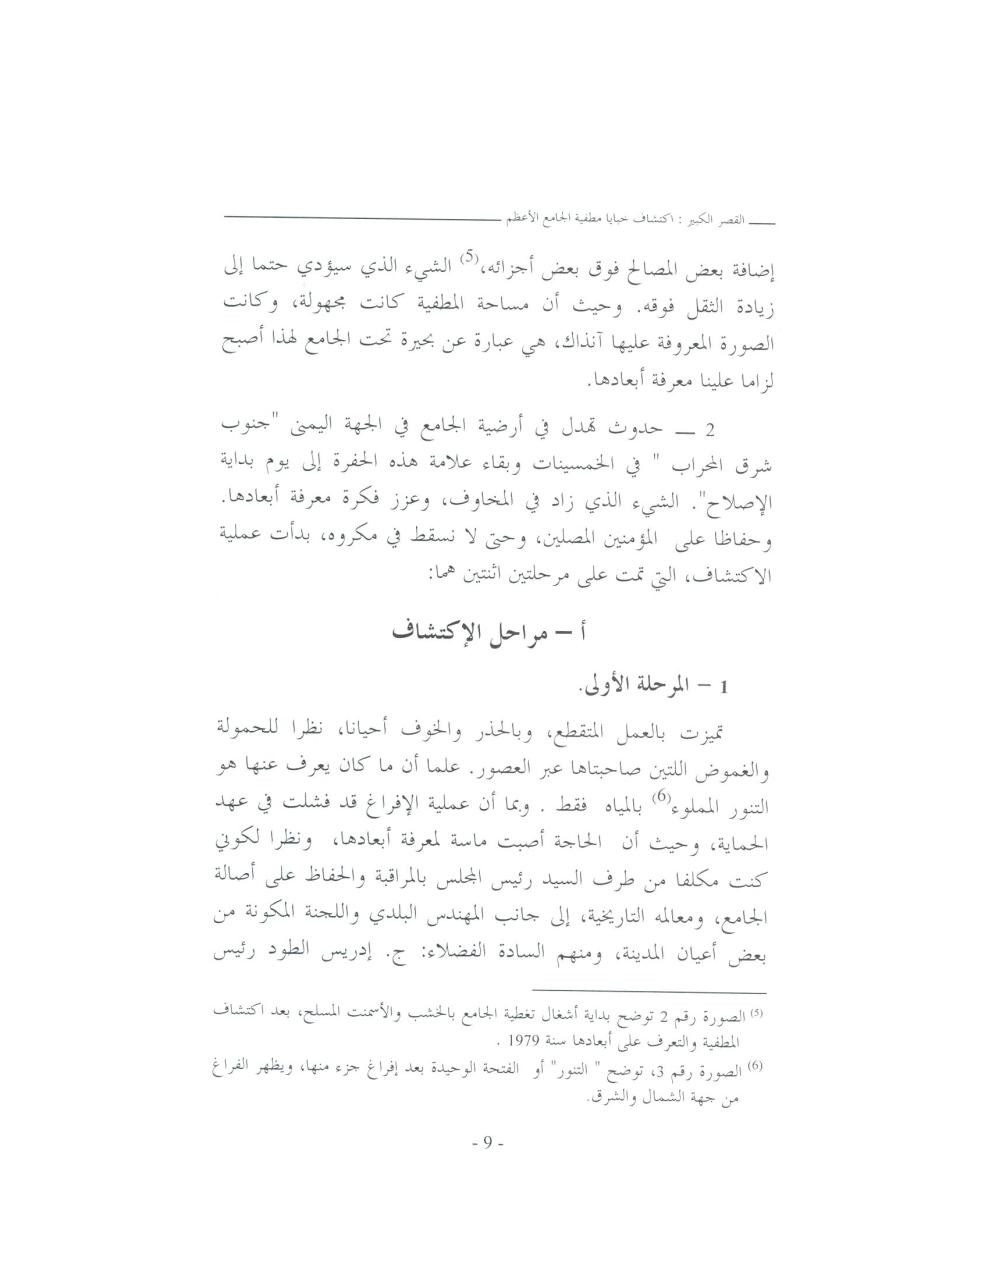 القصر الكبير : اكتشاف خبايا مطفية الجامع الأعظم
إضافة بعض المصالح فوق بعض أجزائه،(5) الشيء الذي سيؤدي حتما إلى
زيادة الثقل فوقه. وحيث أن مساحة المطفية كانت مجهولة، وكانت
الصورة المعروفة عليها آنذاك، هي عبارة عن بحيرة تحت الجامع لهذا أصبح
لزاما علينا معرفة أبعادها.
2 — حدوث تهدل في أرضية الجامع في الجهة اليمنى "جنوب
شرق المحراب " في الخمسينات وبقاء علامة هذه الحفرة إلى يوم بداية
الإصلاح". الشيء الذي زاد في المخاوف، وعزز فكرة معرفة أبعادها.
وحفاظا على المؤمنين المصلين، وحتى لا نسقط في مكروه، بدأت عملية
الاكتشاف، التي تمت على مرحلتين اثنتين هما:
أ – مراحل الإكتشاف
1 – المرحلة الأولى.
تميزت بالعمل المتقطع، وبالحذر والخوف أحيانا، نظرا للحمولة
والغموض اللتين صاحبتاها عبر العصور. علما أن ما كان يعرف عنها هو
التنور المملوء(6) بالمياه فقط . وبما أن عملية الإفراغ قد فشلت في عهد
الحماية، وحيث أن الحاجة أصبت ماسة لمعرفة أبعادها، ونظرا لكوني
كنت مكلفا من طرف السيد رئيس المجلس بالمراقبة والحفاظ على أصالة
الجامع، ومعالمه التاريخية، إلى جانب المهندس البلدي واللجنة المكونة من
بعض أعيان المدينة، ومنهم السادة الفضلاء: ج. إدريس الطود رئيس
(5) الصورة رقم 2 توضح بداية أشغال تغطية الجامع بالخشب والأسمنت المسلح، بعد اكتشاف
المطفية والتعرف على أبعادها سنة 1979 .
(6) الصورة رقم 3، توضح " التنور" أو الفتحة الوحيدة بعد إفراغ جزء منها، ويظهر الفراغ
من جهة الشمال والشرق.
- 9 -